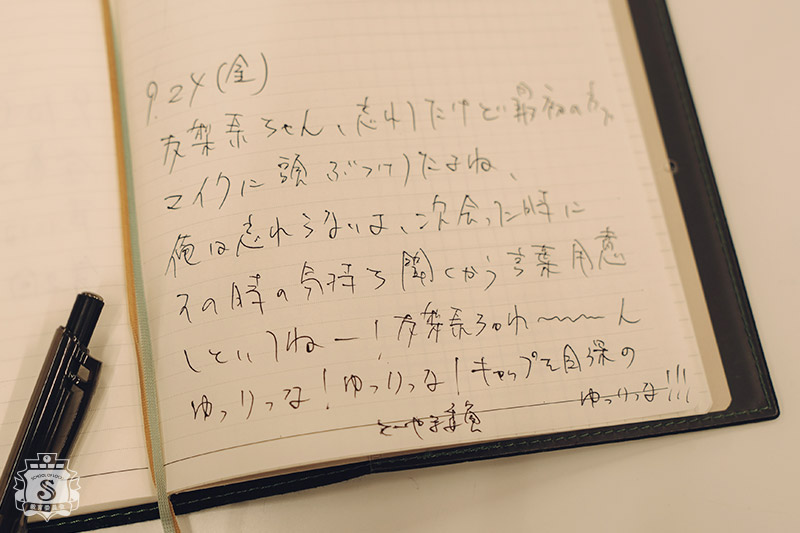 9.24(金)
友梨奈ちゃん、忘れてたけど最初の方、
マイクに頭ぶつけてたよね、
俺は忘れらないよ、次会った時に
その時の気持ち聞くから言葉用意
しといてねー！友梨奈ちゅわ〜〜〜ん
ゆっりっな！ゆっりっな！キャップを目深の
ゆっりっな!!!
とーやま委員
SCHOOL OF LOCK
S